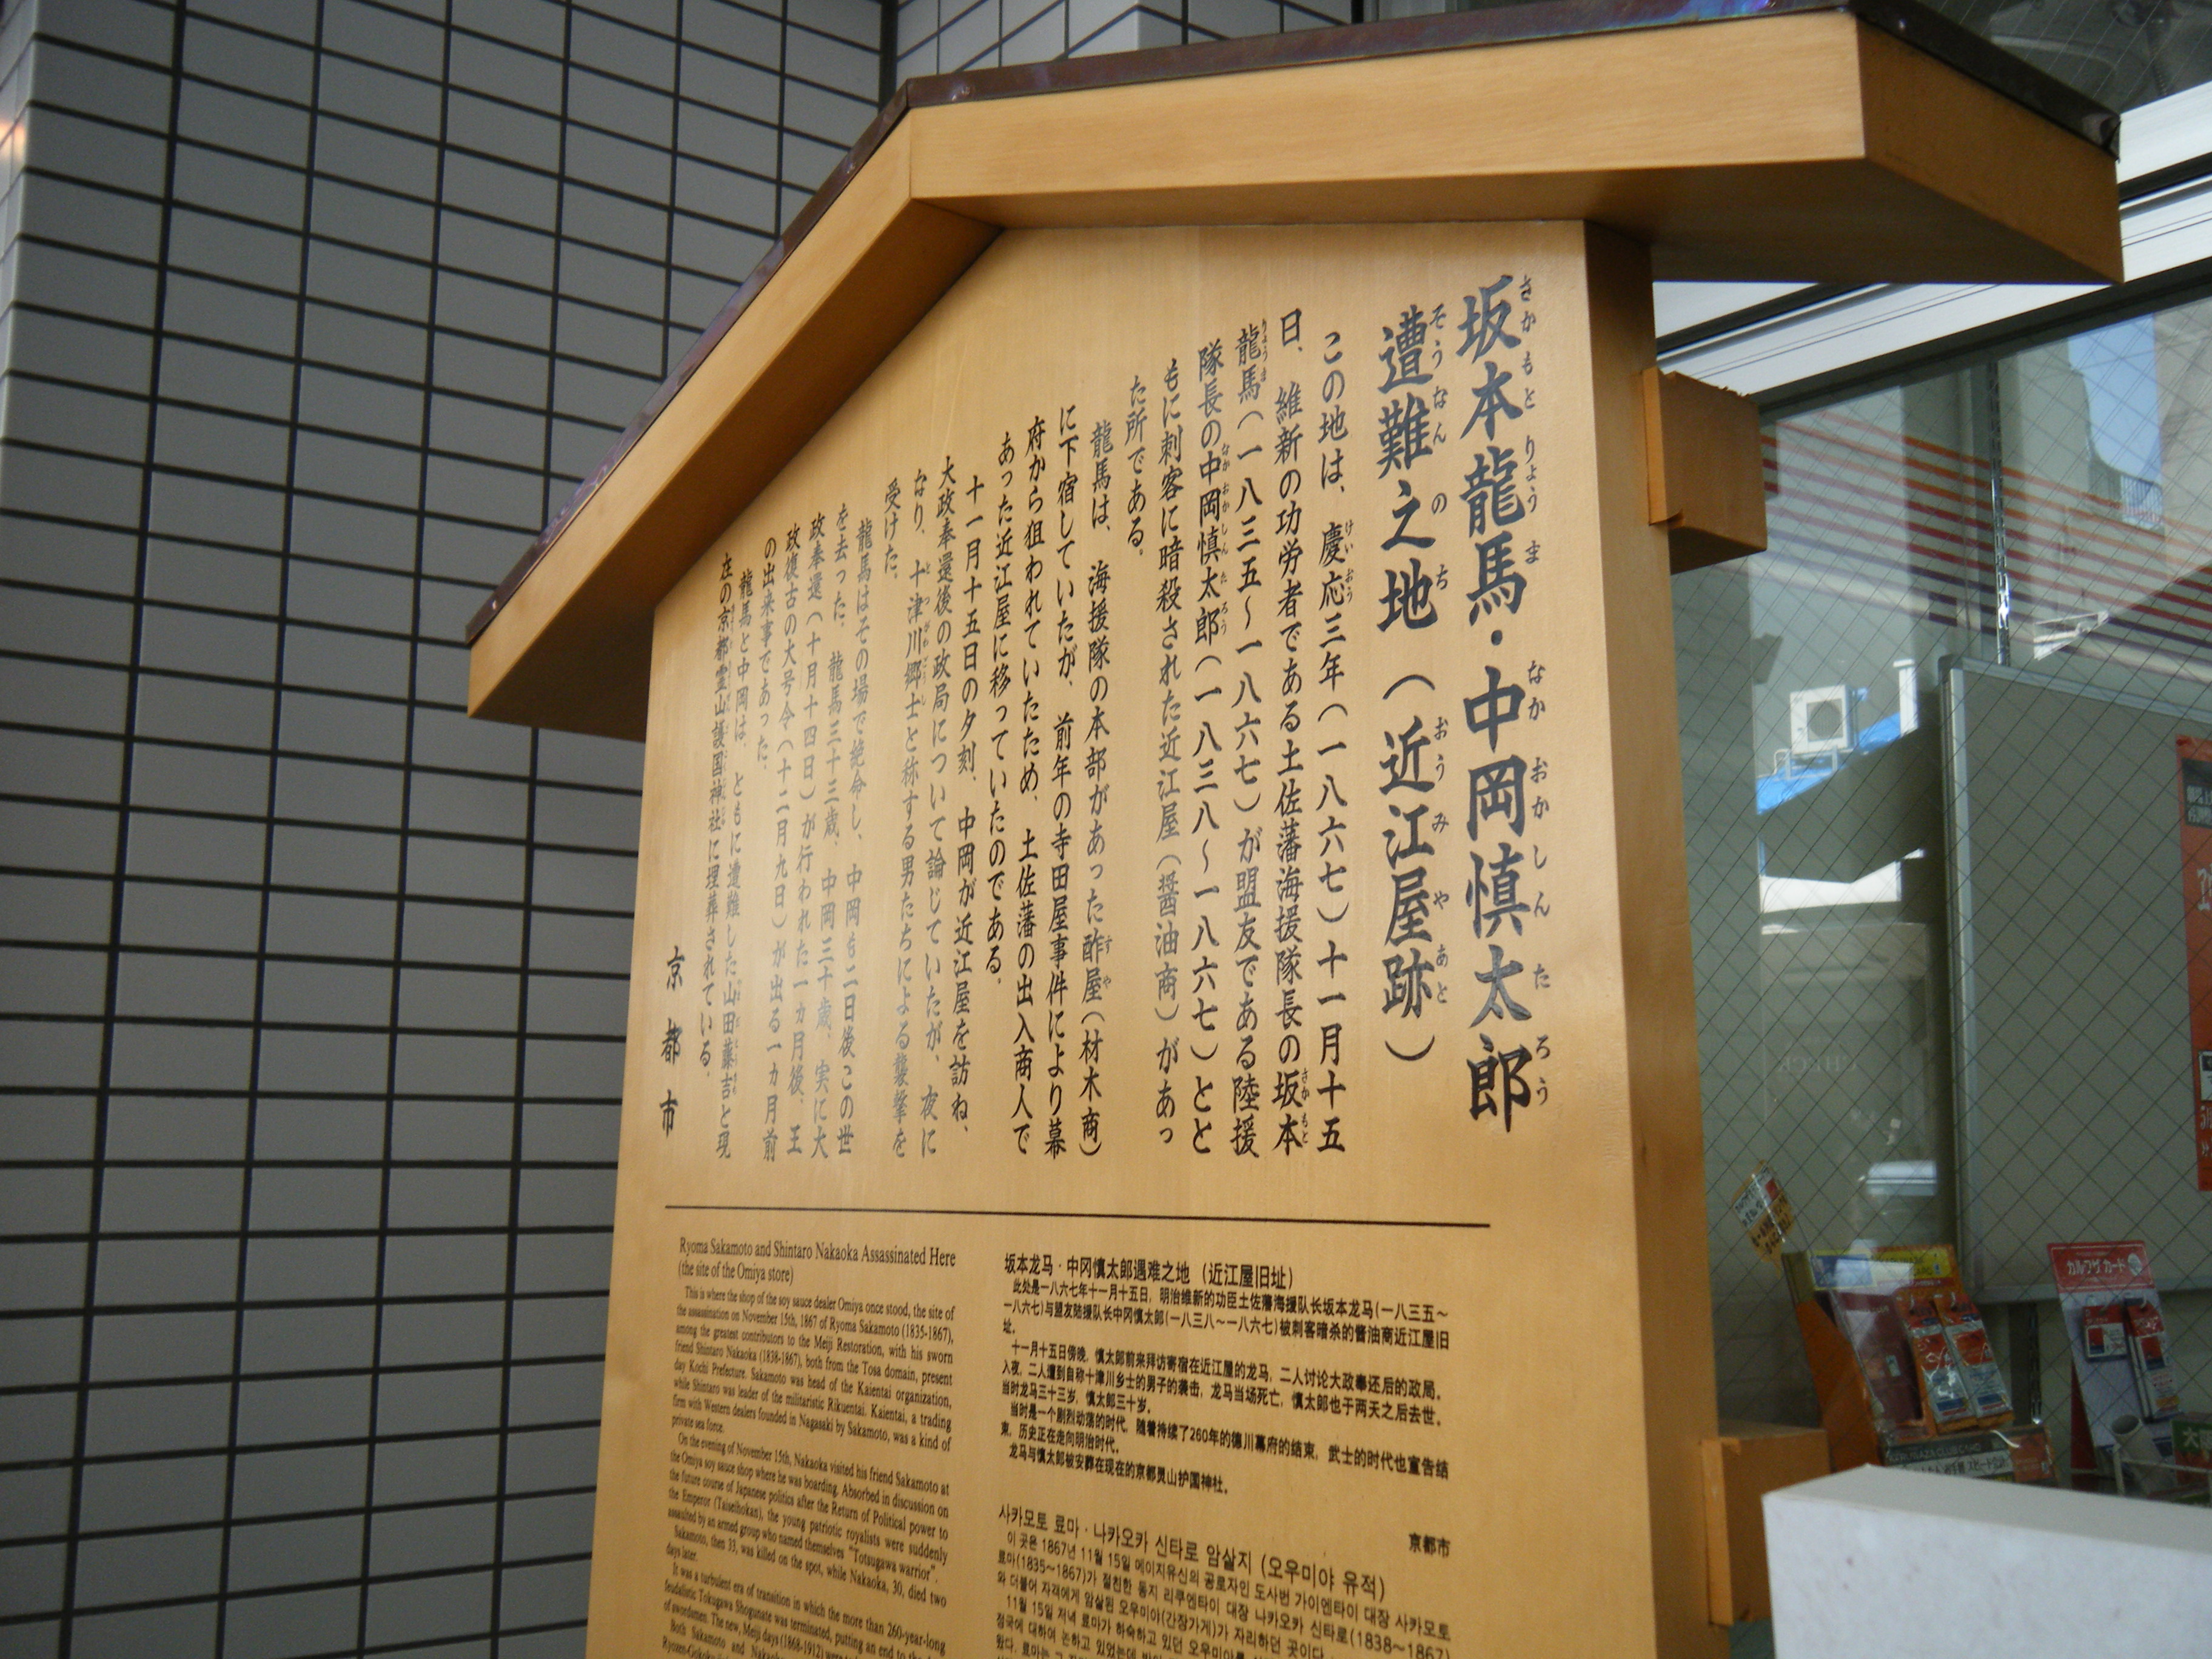 坂本龍馬・中岡慎太郎
遭難之地（近江屋跡）
この地は、慶応三年（一八六七）十一月十五
日、維新の功労者である土佐藩海援隊長の坂本
龍馬（一八三五～一八六七）が盟友である陸援
隊長の中岡慎太郎（一八三八～一八六七）とと
もに刺客に暗殺された近江屋（醤油商）があっ
た所である。
龍馬は、海援隊の本部があった酢屋（材木商）
に下宿していたが、前年の寺田屋事件により幕
府から狙われていたため、土佐藩の出入商人で
あった近江屋に移っていたのである。
十一月十五日の夕刻、中岡が近江屋を訪ね、
大政奉還後の政局について論じていたが、夜に
なり、十津川郷士と称する男たちによる襲撃を
受けた。
龍馬はその場で絶命し、中岡も二日後この世
を去った。龍馬三十三歳、中岡三十歳、実に大
政奉還（十月十四日）が行われた一ヵ月後、王
政復古の大号令（十二月九日）が出る一ヵ月前
の出来事であった。
龍馬と中岡は、ともに遭難した山田藤吉と現
在の京都霊山護国神社に埋葬されている。
京都市
Ryoma Sakamoto and Shintaro Nakaoka Assassinated Here
(the site of the Omiya store)
This is where the shop of the soy sauce dealer Omiya once stood, the site of
the assassination on November 15th, 1867 of Ryoma Sakamoto (1835-1867),
among the greatest contributors to the Meiji Restoration, with his sworn
friend Shintaro Nakaoka (1838-1867), both from the Tosa domain, present
day Kochi Prefecture. Sakamoto was head of the Kaientai organization,
while Shintaro was leader of the militaristic Rikuentai. Kaientai, a trading
firm with Western dealers founded in Nagasaki by Sakamoto, was a kind of
private sea force.
On the evening of November 15th, Nakaoka visited his friend Sakamoto at
the Omiya soy sauce shop where he was boarding. Absorbed in discussion on
the future course of Japanese politics after the Return of Political power to
the Emperor (Taiseihokan), the young patriotic royalists were suddenly
assaulted by an armed group who named themselves "Totsugawa warrior".
Sakamoto, then 33, was killed on the spot, while Nakaoka, 30, died two
days later.
It was a turbulent era of transition in which the more than 260-year-long
feudalistic Tokugawa Shogunate was terminated, putting an end to the
of swordsmen. The new, Meiji days (1868-1912) were
Both Sakamoto and Nakaoka
坂本龙马・中冈慎太郎遇难之地（近江屋旧址）
此处是一八六七年十一月十五日，明治维新的功臣土佐藩海援队长坂本龙马(一八三五～
一八六七)与盟友陆援队长中冈慎太郎(一八三八～一八六七)被刺客暗杀的酱油商近江屋旧
址。
十一月十五日傍晚，慎太郎前来拜访寄宿在近江屋的龙马，二人讨论大政奉还后的政局。
入夜，二人遭到自称十津川乡士的男子的袭击，龙马当场死亡，慎太郎也于两天之后去世。
当时龙马三十三岁，慎太郎三十岁。
当时是一个剧烈动荡的时代，随着持续了260年的德川幕府的结束，武士的时代也宣告结
束，历史正在走向明治时代。
龙马与慎太郎被安葬在现在的京都灵山护国神社。
京都市
사카모토 료마・나카오카 신타로 암살지 (오우미야 유적)
이 곳은 1867년 11월 15일 메이지유신의 공로자인 도사번 가이엔타이 대장 사카모토
료마(1835～1867)가 절친한 동지 리쿠엔타이 대장 나카오카 신타로(1838～1867)
와 더불어 자객에게 암살된 오우미야(간장가게)가 자리하던 곳이다.
11월 15일 저녁 료마가 하숙하고 있던 오우미야를
정국에 대하여 논하고 있었는데
カルワザカード